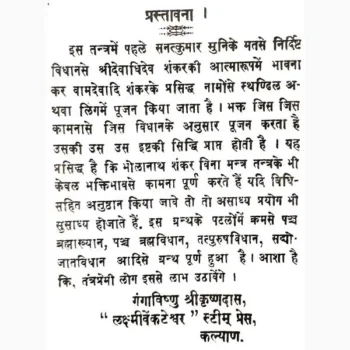 प्रस्तावना ।
इस तन्त्रमें पहले सनत्कुमार मुनिके मतसे निर्दिष्ट
विधानसे श्रीदेवाधिदेव शंकरकी आत्मारूपमें भावना
कर वामदेवादि शंकरके प्रसिद्ध नामोंसे स्थण्डिल अ-
थवा लिंगमें पूजन किया जाता है । भक्त जिस जिस
कामनासे जिस विधानके अनुसार पूजन करता है
उसकी उस उस इष्टकी सिद्धि प्राप्त होती है । यह
प्रसिद्ध है कि भोलानाथ शंकर विना मन्त्र तन्त्रके भी
केवल भक्तिभावसे कामना पूर्ण करते हैं यदि विधि-
सहित अनुष्ठान किया जावे तो तो असाध्य प्रयोग भी
सुसाध्य होजाते हैं. इस ग्रन्थके पटलोंमें क्रमसे पञ्च
ब्रह्माख्यान, पञ्च ब्रह्मविधान, तत्पुरुषविधान, सद्यो-
जातविधान आदिसे ग्रन्थ पूर्ण हुआ है । आशा है
कि, तंत्रप्रेमी लोग इससे लाभ उठावेंगे ।
गंगाविष्णु श्रीकृष्णदास,
“ लक्ष्मीवेंकटेश्वर ” स्टीम् प्रेस,
कल्याण.